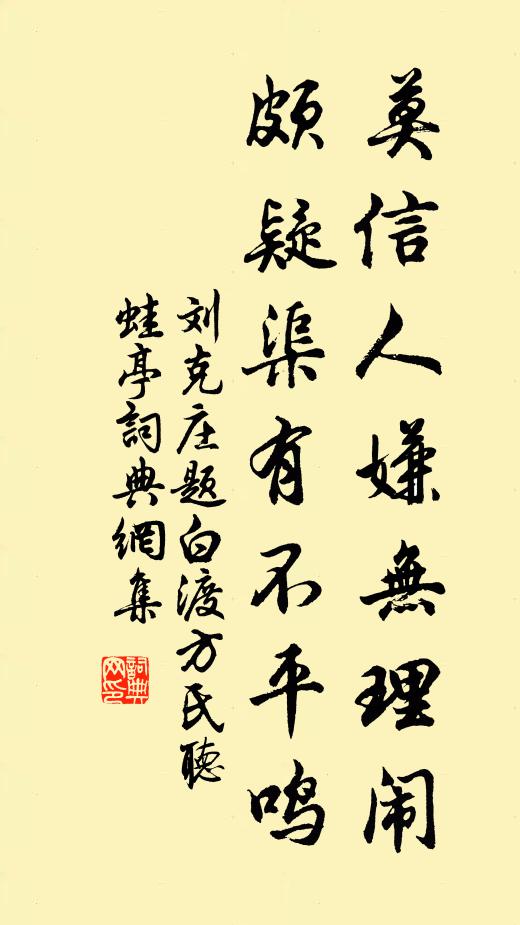 莫信人嫌無理闹
頗疑渠有不平鸣
刘克庄题白渡方氏聽
蛙亭詞典網集
詞典網印